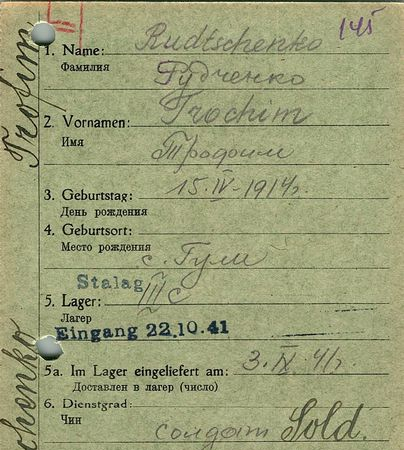 145
1. Name: Rudtschenko
Фамилия Рудченко
2. Vornamen: Trochim
Имя Трофим
3. Geburtstag: 15.IV-1914г
День рождения
4. Geburtsort:
Место рождения с. Гули
Stalag
5. Lager: III c
Лагер
Eingang 22.10.41
5a. Im Lager eingeliefert am: 3.IX.41г.
Доставлен в лагер (число)
6. Dienstgrad:
Чин солдат Sold.
Trofim
chenko